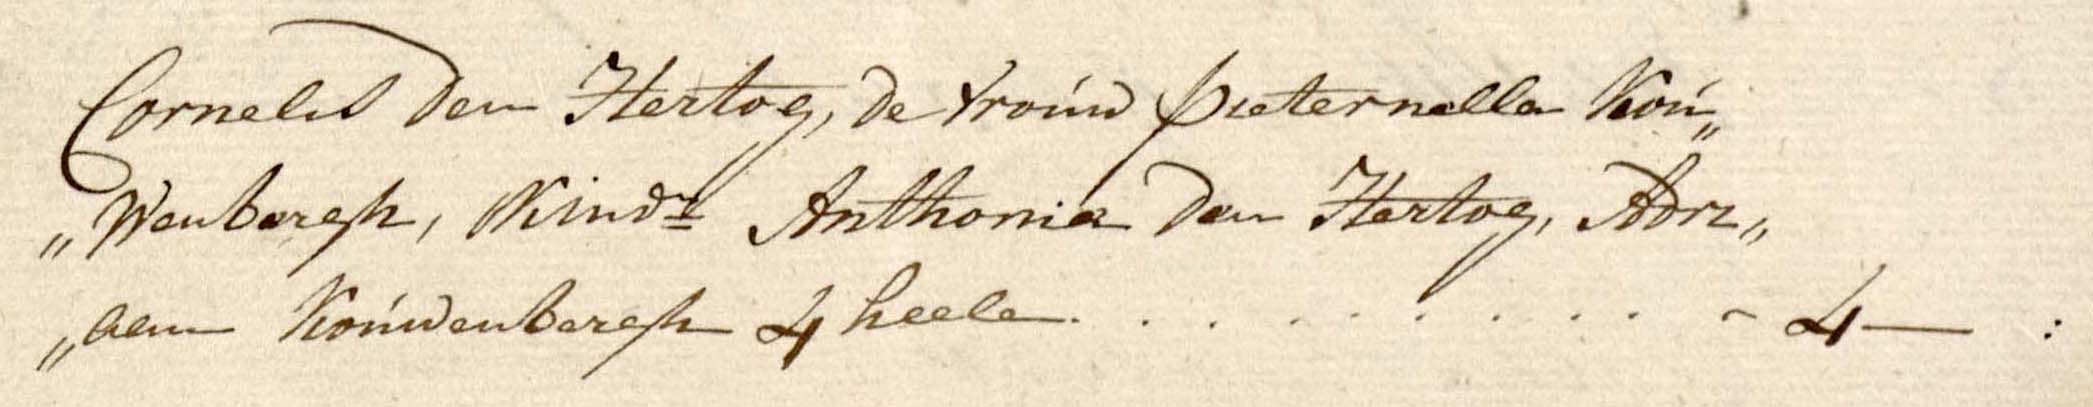 Cornelis den Hertog, de vrouw Pieternella Kou„
„wenbergh, Kindrn Anthonia den Hertog, Adri„
„aen Kouwenbergh 4 heele. . . . . . . . . - 4 — :